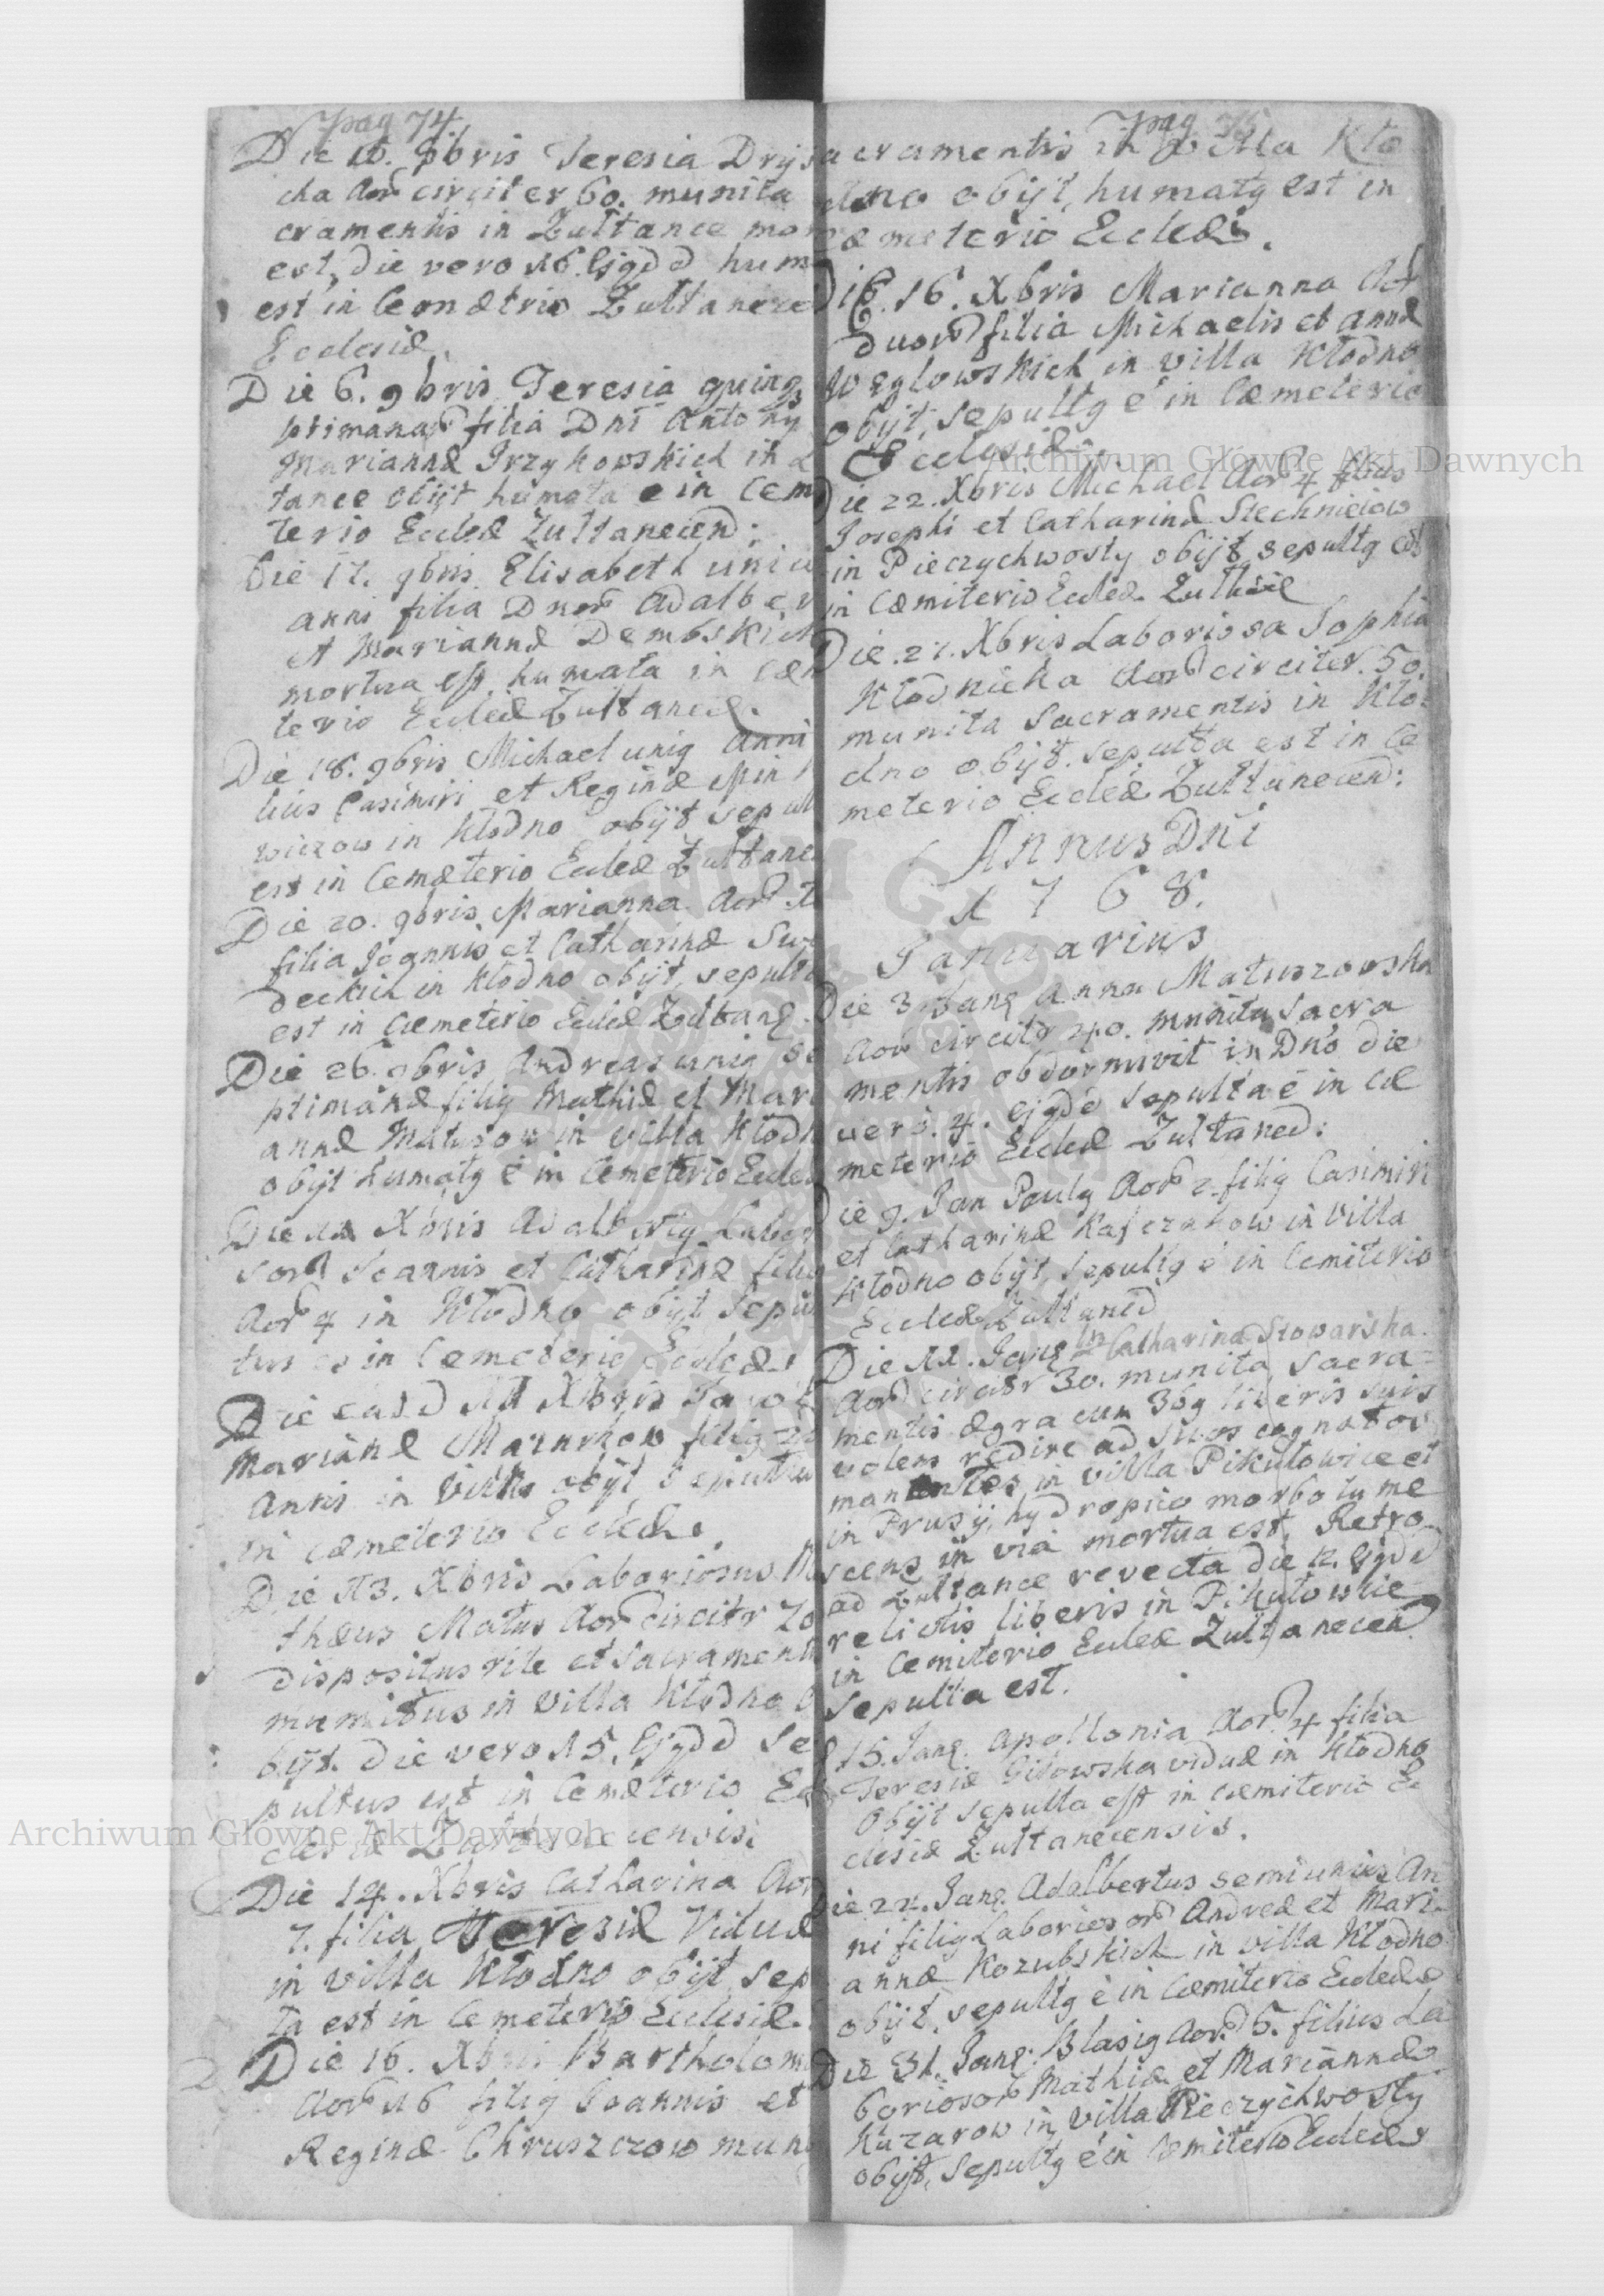 pag 74.
Die 16. 9bris Teresia Dry
cha Aor circiter 60. munita
cramentis in Zultance mor
est, die vero 16. Ejqdd hum
est in Cemætrio Zultanece
Ecclesiæ.
Die 6. 9bris Teresia quinq
ptimanar filia Dni Antony
Mariannæ Irzykowskich in
tance obijt humata e in Cem
terio Eccleæ Zultanecen:
Die 17. 9bris Elisabeth uniu
anni filia Dnor Adalber
et Mariannæ Dembskich
mortua est humata in cæm
terio Eccleæ Zultanec.
Die 18. 9bris Michael uniq Anni
lius Casimiri et Reginæ
wiczow in Kłodno obijt sepul
est in Cemæterio Eccleæ Zultane
Die 20. 9bris Marianna Aor
filia Joannis et Catharinæ Sw
deckich in Kłodno obijt, sepulta
est in Cæmeterio Eccleæ Zultanę.
Die 26. 9bris Andreas uniq se
ptimanæ filiq Mathiæ et Mari
annæ Matusow in villa Kłodn
obijt humatq e in Cemeterio Eccleæ
Die 11 Xbris Adalbertq Labor
sor Joannis et Catharinæ filiq
Aor 4 in Kłodno obijt Sepul
tus es in Cemeterio Eccleæ.
Die eadd 11 Xbris
Marianæ filiq
Annis in Villa obijt Sepultu
in cæmeterio Eccleæ.
Die 13. Xbris Laboriosus
thæus Matus Aor circitr 70
dispositus rite et Sacrament
munitus in Villa Kłodno
bijt. Die vero 15. Ejqdd Se
pultus est in Cemæterio Ec
clesiæ Zultanecensis.
Die 14. Xbris Catharina Aor
7. filia Teresiæ Viduæ
in villa Kłodno obijt sep
ta est in Cemeterio Ecclesiæ.
Die 16. Xbris Bartholom
Aor 16 filiq Joannis et
Reginæ Chruszczow muni
pag 75
acramentis in Villa Kło
dno obijt, humatq est in
cæmeterio Eccleæ.
Die 16. Xbris Marianna Aor
duor filia Michaelis et Annæ
Węglowskich in villa Kłodno
obijt, sepultq e in Cæmeterio
Ecclesiæ.
Die 22. Xbris Michael Aor 4 filius
Josephi et Catharinæ Stechniciow
in Pieczychwosty obijt sepultq est
in Cæmiterio Eccleæ
Die 27. Xbris Laboriosa Sophia
Kłodnicka Aor circiter 50.
munita Sacramentis in Kło
dno obijt. sepulta est in Ce
meterio Eccleæ Zultanecen:
Annus Dni
1768.
Januarius
Die 3 Janę Anna Matuszowska
Aor circitr 40. munita Sacra
mentis obdormivit in Dno die
vero. 4. ejqde Sepulta e in Cæ
meterio Eccleæ Zultaned:
ie 9. Jan Paulq Aor 2. filiq Casimiri
et Catharinæ Kafczakow in Villa
Kłodno obijt, sepultq e in Cemiterio
Eccleæ Zultaned
Die 11. Janę Catharina Stowarska.
Aor circitr 30. munita Sacra-
mentis ægra cum 3bq liberis suis
volens redire ad suos cognatos
manentes in villa Pikułowice et
in Prusy, hydropico morbo tume
scens in via mortua est, Retro
ad Zultance revecta die 12. Ejqdd
relictis liberis in Pikułowice
in Cemiterio Eccleæ Zultanecen
Sepulta est.
15. Janę. Apollonia Aor 4 filia
Teresiæ viduæ in Kłodno
Obijt sepulta est in cæmiterio Ec
clesiæ Zultanecensis.
ie 22. Janę. Adalbertus semiunius An
ni filiq Laboriosor Andreæ et Mari-
annæ Kozubskich in villa Kłodno
obijt. sepultq e in Cæmiterio Eccleæ
Die 31. Janę. Blasiq Aor 5. filius La
boriosor Mathiæ et Mariannæ
Kuzarow in Villa Pieczychwosty
obijt, Sepultq e in Cæmiterio Eccleæ
Archiwum Główne Akt Dawnych
Archiwum Główne Akt Dawnych